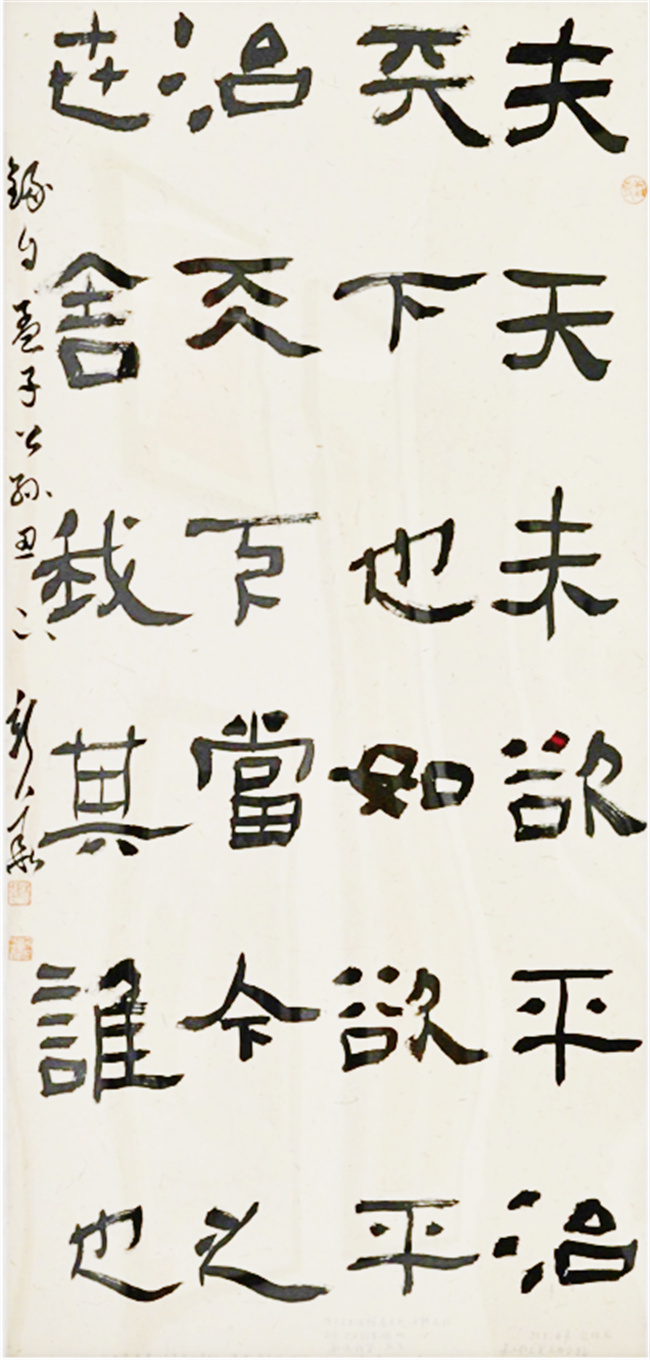 夫天未欲平治
天下也如欲平
治天下當今之
世舍我其誰也
錄自孟子公孫丑下